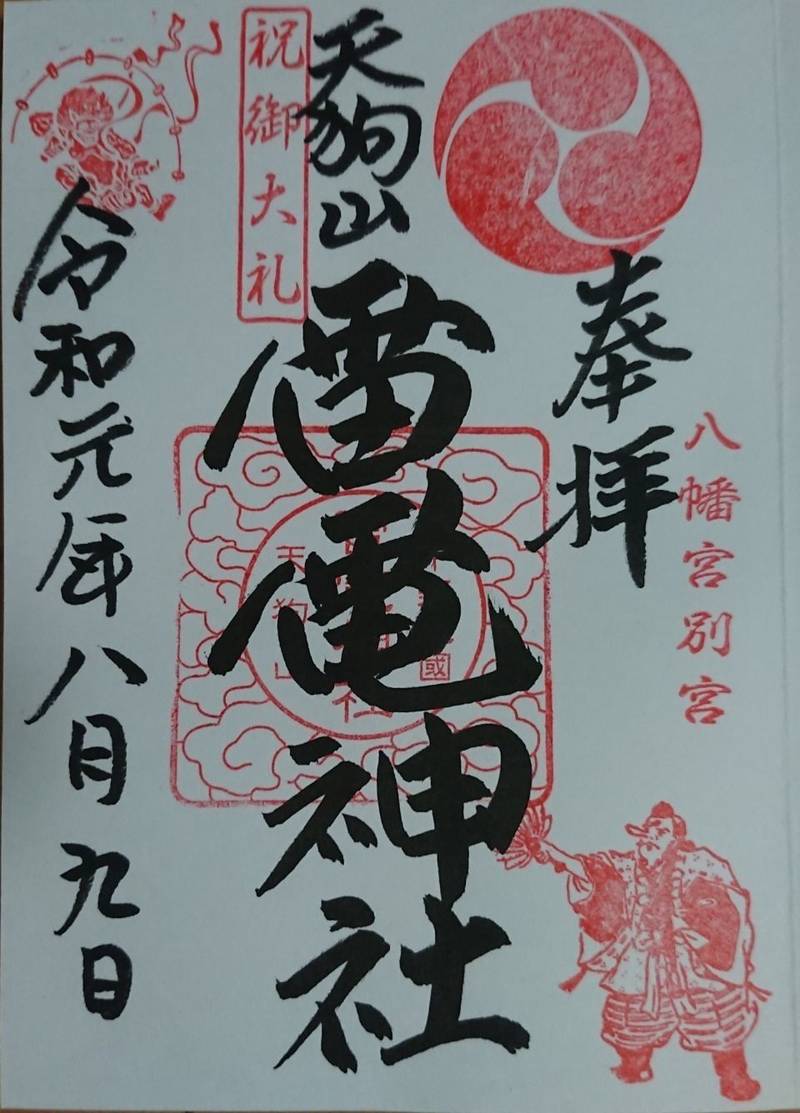 八幡宮別宮
奉拝
天狗山
雷電神社
祝御大礼
令和元年八月九日